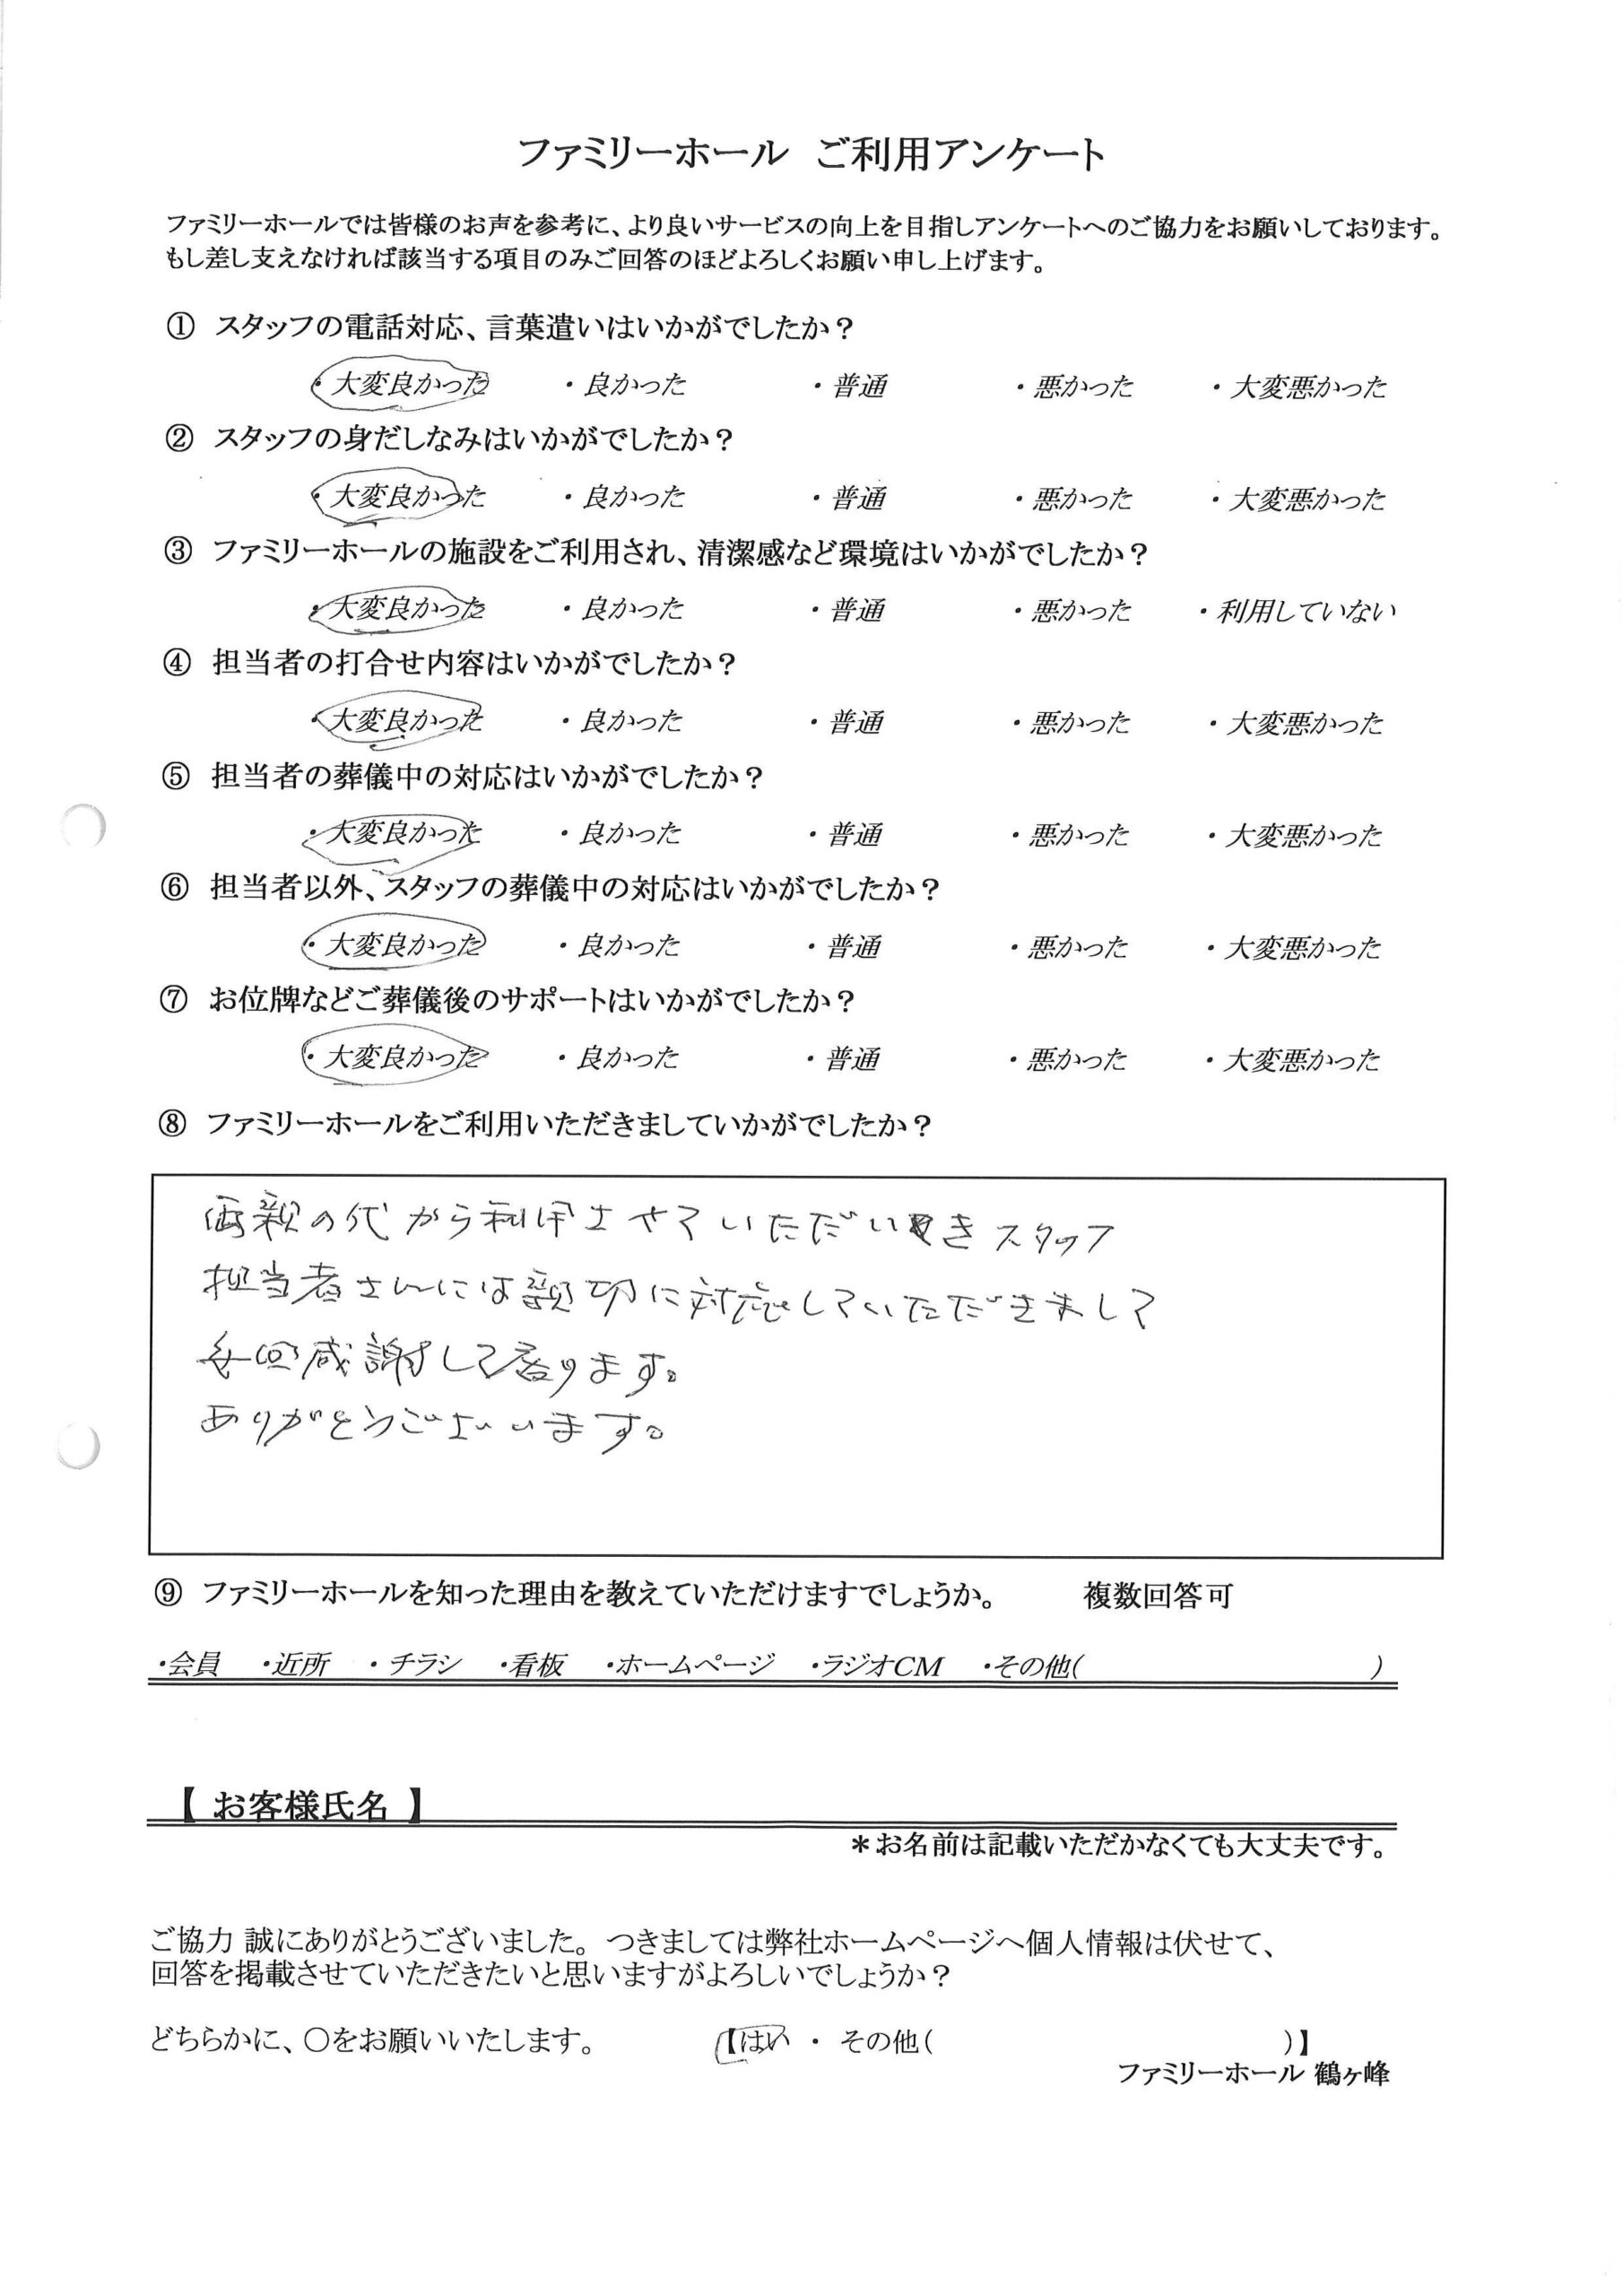 ファミリーホール ご利用アンケート
ファミリーホールでは皆様のお声を参考に、より良いサービスの向上を目指しアンケートへのご協力をお願いしております。
もし差し支えなければ該当する項目のみご回答のほどよろしくお願い申し上げます。
① スタッフの電話対応、言葉遣いはいかがでしたか？
・大変良かった ・良かった ・普通 ・悪かった ・大変悪かった
② スタッフの身だしなみはいかがでしたか？
・大変良かった ・良かった ・普通 ・悪かった ・大変悪かった
③ ファミリーホールの施設をご利用され、清潔感など環境はいかがでしたか？
・大変良かった ・良かった ・普通 ・悪かった ・利用していない
④ 担当者の打合せ内容はいかがでしたか？
・大変良かった ・良かった ・普通 ・悪かった ・大変悪かった
⑤ 担当者の葬儀中の対応はいかがでしたか？
・大変良かった ・良かった ・普通 ・悪かった ・大変悪かった
⑥ 担当者以外、スタッフの葬儀中の対応はいかがでしたか？
・大変良かった ・良かった ・普通 ・悪かった ・大変悪かった
⑦ お位牌などご葬儀後のサポートはいかがでしたか？
・大変良かった ・良かった ・普通 ・悪かった ・大変悪かった
⑧ ファミリーホールをご利用いただきましていかがでしたか？
両親の代から利用させていただいき スタッフ
担当者さんには親切に対応していただきまして
毎回感謝して居ります。
ありがとうございます。
⑨ ファミリーホールを知った理由を教えていただけますでしょうか。 複数回答可
・会員 ・近所 ・チラシ ・看板 ・ホームページ ・ラジオCM ・その他( )
【 お客様氏名 】
＊お名前は記載いただかなくても大丈夫です。
ご協力 誠にありがとうございました。つきましては弊社ホームページへ個人情報は伏せて、
回答を掲載させていただきたいと思いますがよろしいでしょうか？
どちらかに、○をお願いいたします。 【はい ・ その他( )】
ファミリーホール 鶴ヶ峰